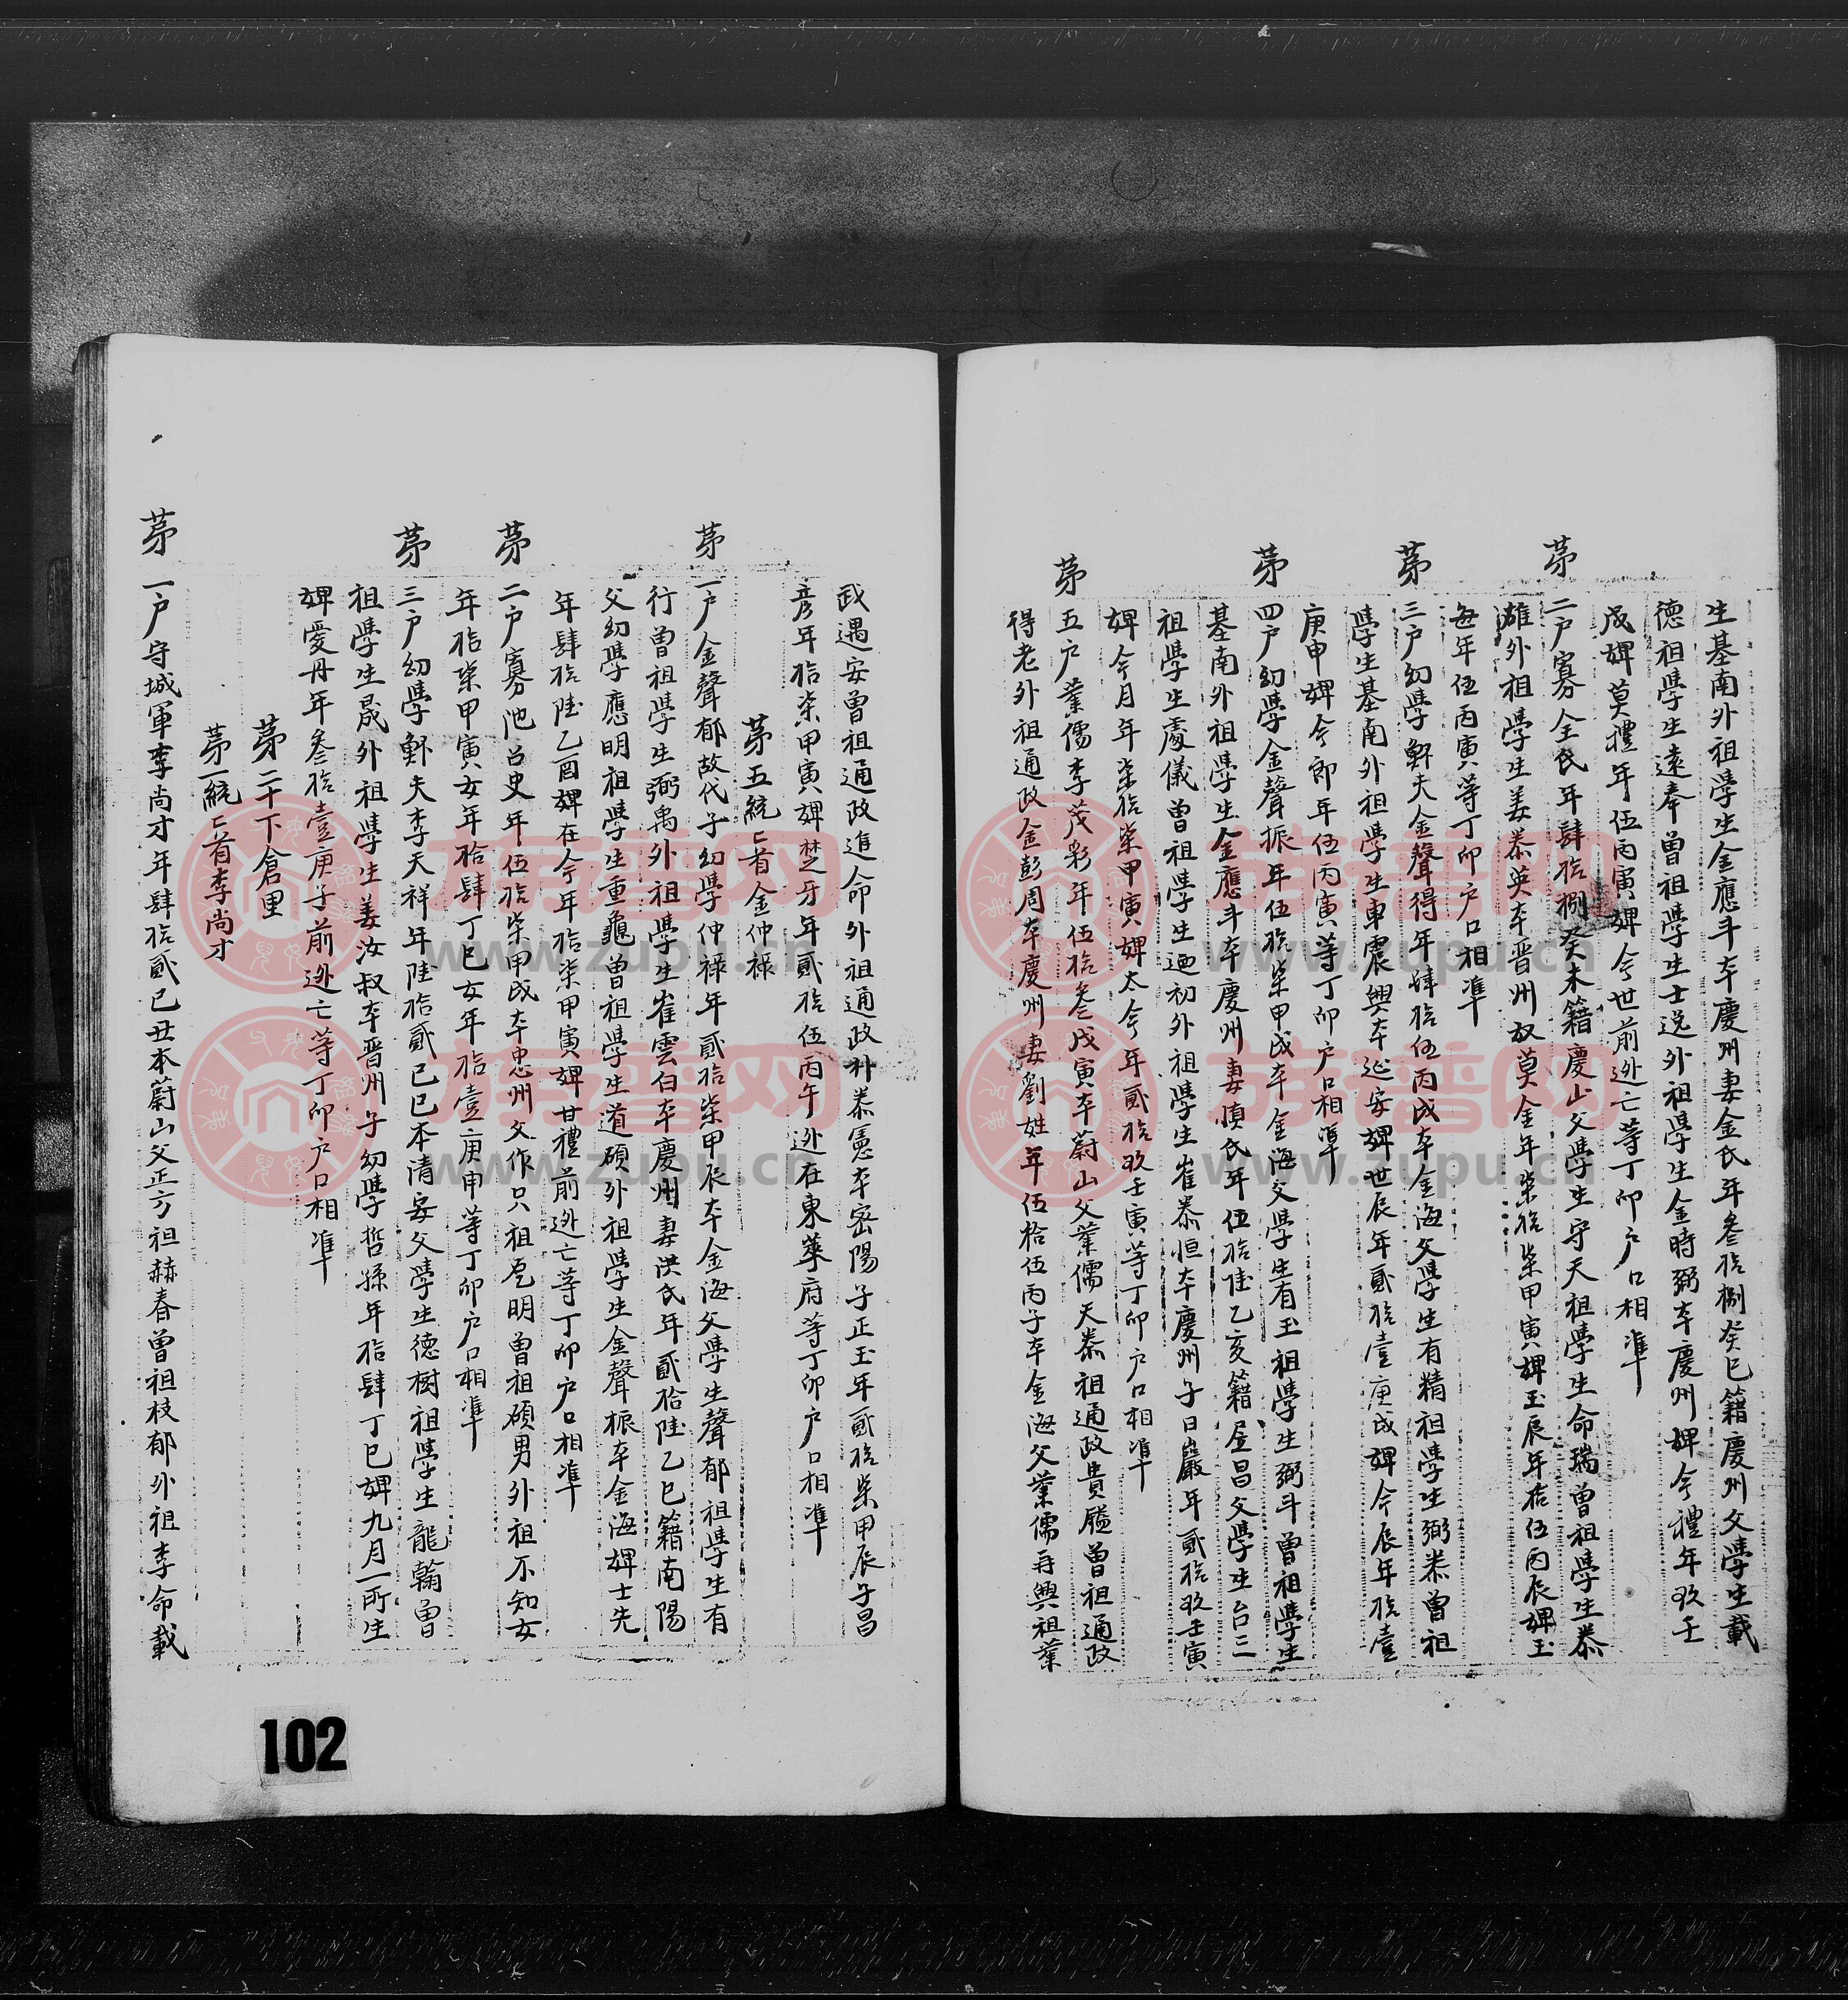 生基南外祖學生金應斗本慶州妻金氏年叁拾捌癸巳籍慶州父學生載
德祖學生遠奉曾祖學生士逸外祖學生金時弼本慶州婢今禮年玖壬
戌婢莫禮年伍丙寅婢今世前逃亡等丁卯户口相準
茅二户寡全氏年肆拾捌癸未籍慶山父學生守天祖學生命瑞曾祖學生泰
雄外祖學生姜泰英本晋州奴莫金年柒拾柒甲寅婢玉辰年拾伍丙辰婢玉
每年伍丙寅等丁卯户口相準
茅三户幼學鮮夫金聲得年肆拾伍丙戌本金海父學生有精祖學生弼泰曾祖
學生基南外祖學生車震興本延安婢世辰年貳拾壹庚戌婢今辰年拾壹
庚申婢今郎年伍丙寅等丁卯户口相準
茅四户幼學金聲振年伍拾柒甲戌本金海父學生有玉祖學生弼斗曾祖學生
基南外祖學生金應斗本慶州妻慎氏年伍拾陸乙亥籍居昌父學生台三
祖學生處儀曾祖學生廼初外祖學生崔泰恒本慶州子日嚴年貳拾玖壬寅
婢今月年柒拾柒甲寅婢太今年貳拾玖壬寅等丁卯户口相準
茅五户業儒李茂彩年伍拾叁戊寅本蔚山父業儒天泰祖通政貴隘曾祖通政
得老外祖通政金彭周本慶州妻劉姓年伍拾伍丙子本金海父業儒再興祖業
武遇安曾祖通政進命外祖通政朴泰憲本密陽子正玉年貳拾柒甲辰子昌
彦年拾柒甲寅婢楚牙年貳拾伍丙午逃在東萊府等丁卯户口相準
茅五統と首金仲祿
茅一户金聲郁故代子幼學仲祿年貳拾柒甲辰本金海父學生聲郁祖學生有
行曾祖學生弼禹外祖學生崔雲白本慶州妻洪氏年貳拾陸乙巳籍南陽
父幼學應明祖學生重龜曾祖學生道碩外祖學生金聲振本金海婢士先
年肆拾陸乙酉婢在今年拾柒甲寅婢甘禮前逃亡等丁卯户口相準
茅二户寡池召史年伍拾柒甲戌本忠州父作只祖芿明曾祖碩男外祖不知女
年拾柒甲寅女年拾肆丁巳女年拾壹庚申等丁卯户口相準
茅三户幼學鮮夫李天祥年陸拾貳己巳本清安父學生德樹祖學生龍翰曾
祖學生晟外祖學生姜汝叔本晋州子幼學哲孫年拾肆丁巳婢九月一所生
婢愛丹年叁拾壹庚子前逃亡等丁卯户口相準
茅二十下倉里
茅一統と首李尚才
茅一户守城軍李尚才年肆拾貳己丑本蔚山父正方祖赫春曾祖枝郁外祖李命載
102
族譜网
www.zupu.cn
族譜网
www.zupu.cn
族譜网
www.zupu.cn
族譜网
www.zupu.cn